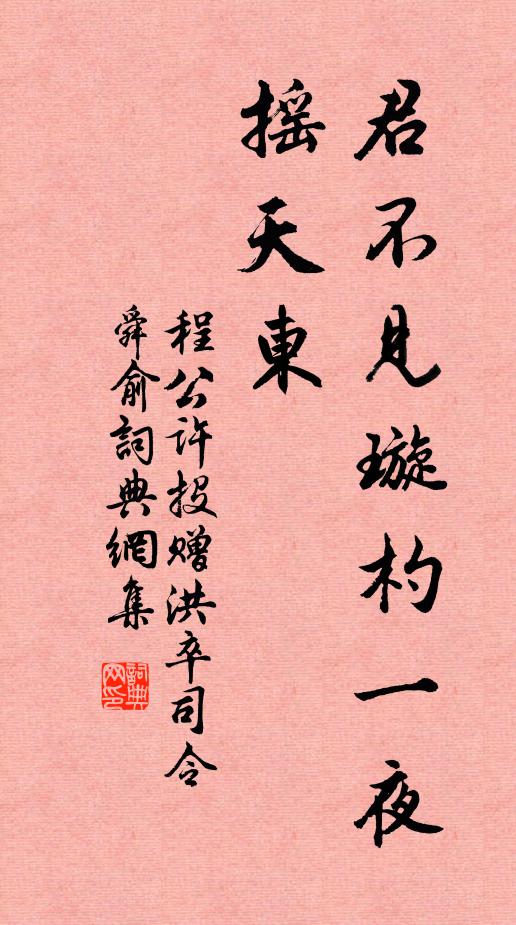 君不見璇杓一夜
摇天東
程公許投贈洪卒司令
舜俞詞典網集
詞典网印